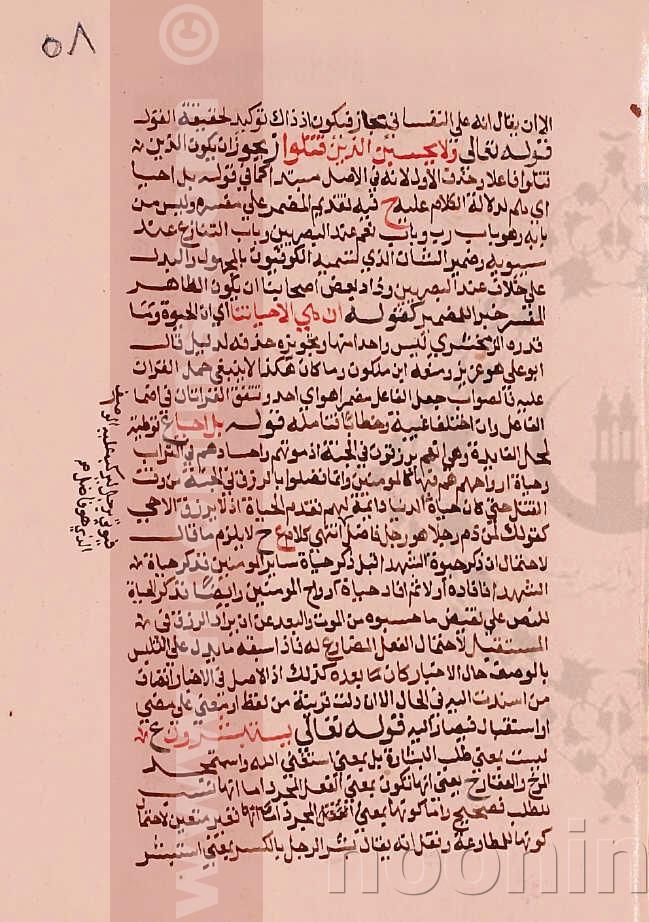 ٥٨
الا ان يقال انه على النفسا في مجاز فيكون اذ ذاك توكيد لحقيقة القول
قوله تعالى ولا يحسبن الذين قتلوا يجوز ان يكون الذين
قتلوا فاعلا وحذف الاول لانه في الاصل مبتدا كما في قوله بل احيا
اي هم لدلالة الكلام عليه ح فيه تقديم المضمر على مفسره وليس من
بابه وهو باب رب وباب نعم عند البصريين وباب التنازع عند
سيبويه وضمير الشان الذي تسميه الكوفيون بالمجهول والبدل
على خلاف عند البصريين وزاد بعض اصحابنا ان يكون الظاهر
المفسر خبر المضمر كقوله ان هي الا حياتنا اي ان الحيوة وما
قدره الزمخشري ليس واحدا منها وتجويزه حذفه لدليل قال
ابو علي هو عزيز ومنعه ابن ملكون وما كان هكذا لا ينبغي حمل القران
عليه فالصواب جعل الفاعل مضمرا هو اي احد وتتفق القراتان في اضما
الفاعل وان اختلفا غيبة وخطابا فتامله قوله بل احيا ع توطية
لمحل الفايدة وهي انهم يرزقون في الجنة اذ موتهم واجسادهم في التراب
وحياة ارواحهم هم فيها كالمومنين وانما فضلوا بالرزق في الجنة من وقت
القتل حتى كان حياة الدنيا دايمة لهم فقدم الحياة اذ لا يرزق الا حي
كقولك لمن ذم رجلا هو رجل فاضل انتهى كلام ع ح لا يلزم ما قال
لاحتمال ان ذكر حيوة الشهدا قبل ذكر حياة ساير المومنين فذكر حياة
الشهدا افاده اولا ثم افاد حياة ارواح المومنين وايضا فذكر الحياة
للنص على نقيض ما حسبوه من الموت والبعد عن ان يراد الرزق في
المستقبل لاحتمال الفعل المضارع له فاذا سبقه ما يدل على التلبس
بالوصف حال الاخبار كان ما بعده كذلك اذ الاصل في الاخبار اتصاف
من اسندت اليه في الحال الا ان دلت قرينة من لفظ او معنى على مضي
او استقبال فيصار اليه قوله تعالى يستبشرون ع
ليست بمعنى طلب البشارة بل بمعنى استغنى الله واستمجد
المرخ والعفار ح يعني انها تكون بمعنى الفعل المجرد اما انها ليست
للطلب فصحيح واما كونها بمعنى المجرد فغير متعين لاحتمال
كونها للمطاوعة ونقل انه يقال بشر الرجل بالكسر بمعنى استبشر
noonin
©
www.